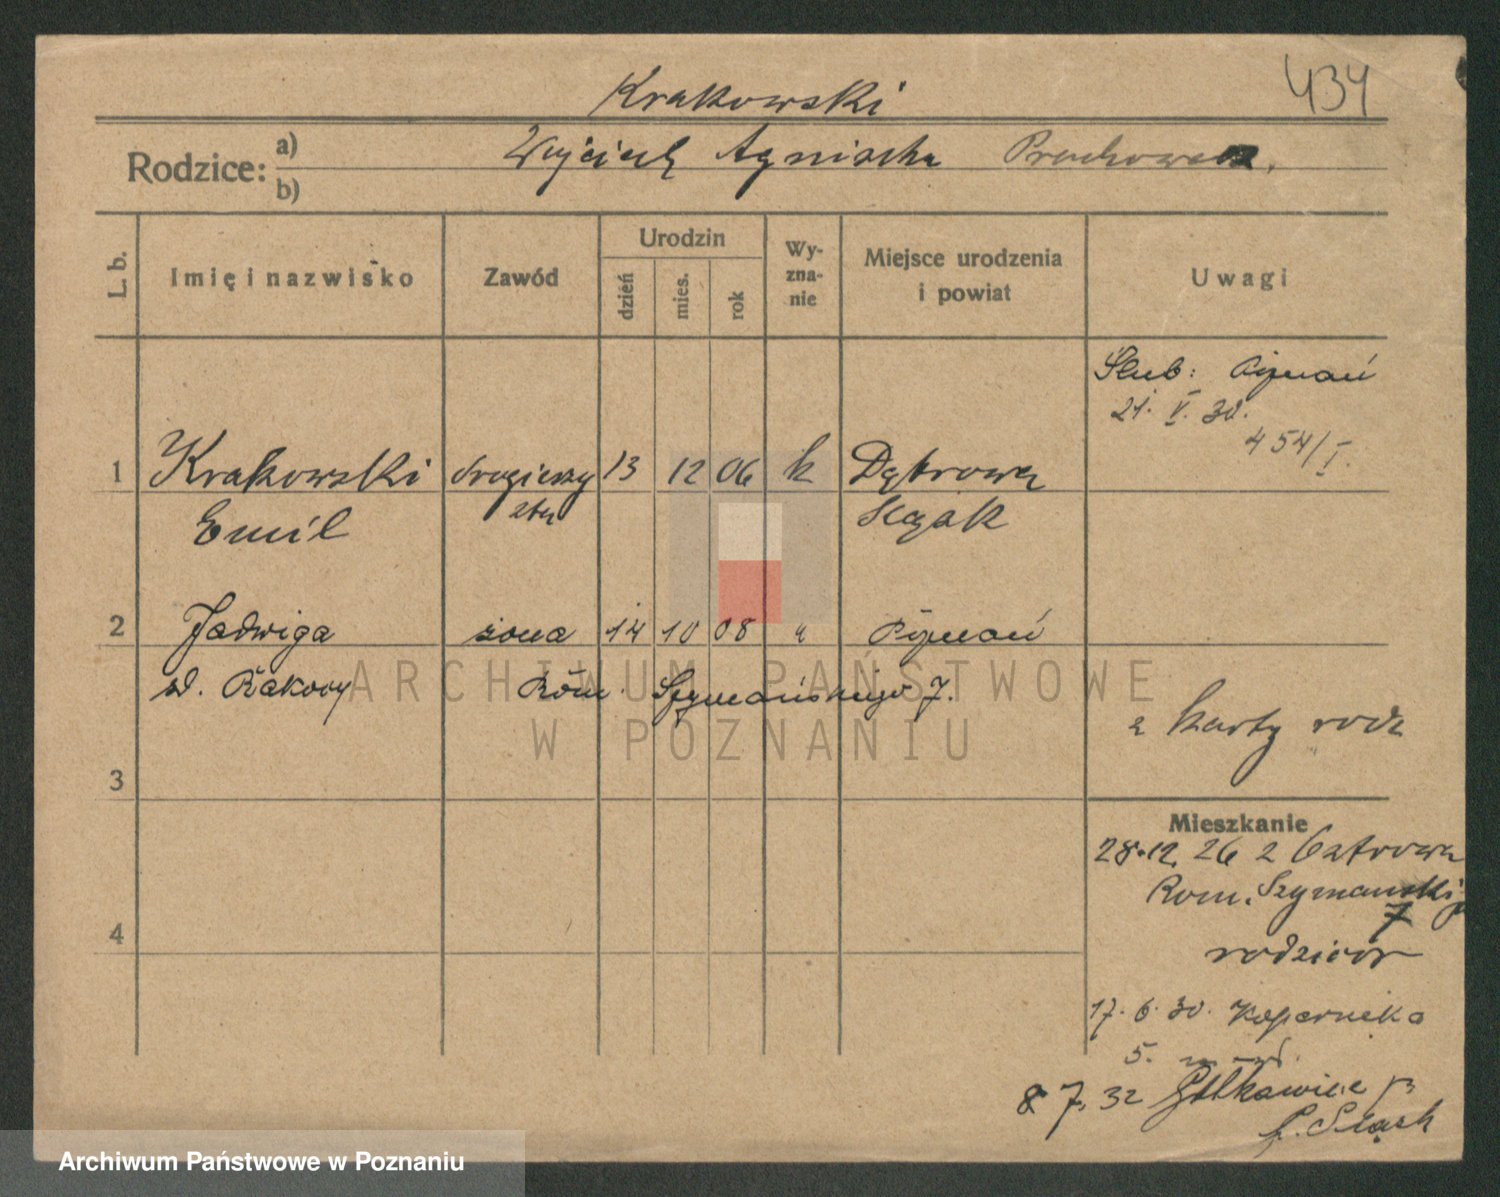 434
Krakowski
Rodzice: a) b)
Wojciech Agnieszka
L. b.
Imię i nazwisko
Zawód
Urodzin
dzień
mies.
rok
Wy-
zna-
nie
Miejsce urodzenia
i powiat
Uwagi
Ślub: Poznań
21. V. 30.
454/I.
1 Krakowski 13 12 06 k Dąbrowa
Emil Śląsk
2 Jadwiga żona 14 10 08 " Poznań
Rom. Szymańskiego 7.
z karty rodz
3
4
Mieszkanie
28.12.26 z Ostrowa
Rom. Szymański
7
rodziców
17.6.30. Kopernika
5.
8.7.32
Śląsk
ARCHIWUM PAŃSTWOWE
W POZNANIU
Archiwum Państwowe w Poznaniu